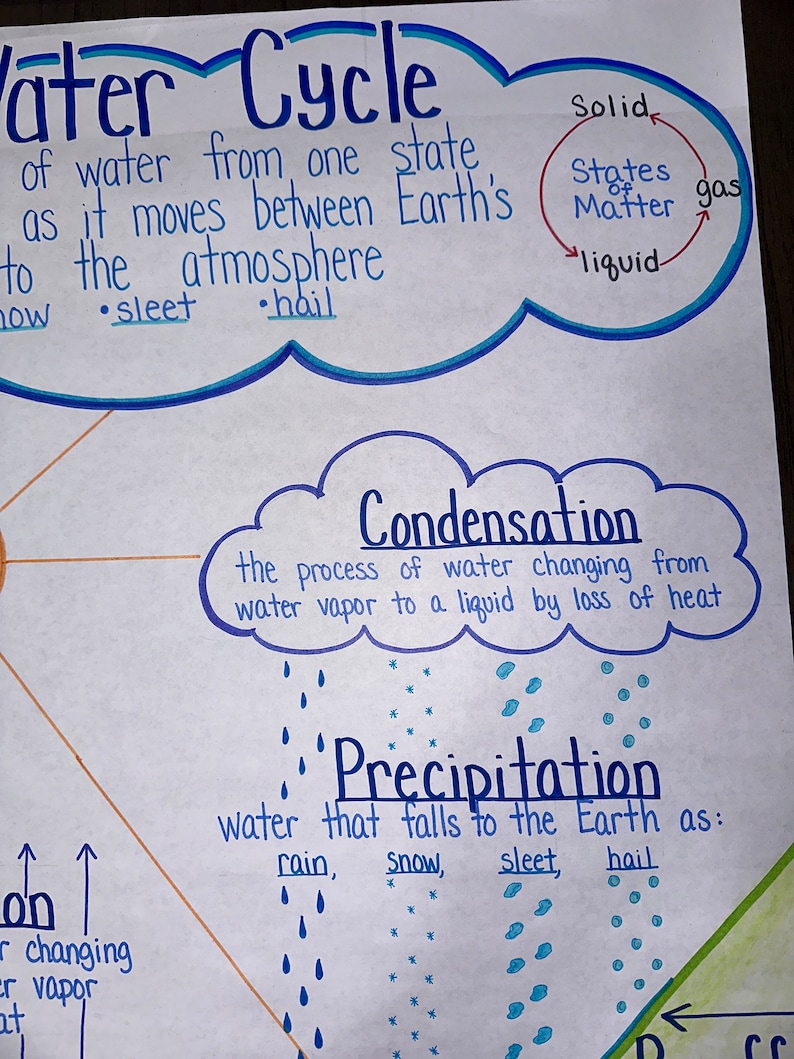 ater Cycle
of water from one state
as it moves between Earth's
to the atmosphere
now •sleet •hail
Solid
States
of
Matter
gas
liquid
Condensation
the process of water changing from
water vapor to a liquid by loss of heat
Precipitation
water that falls to the Earth as:
rain, snow, sleet, hail
on
r changing
er vapor
at